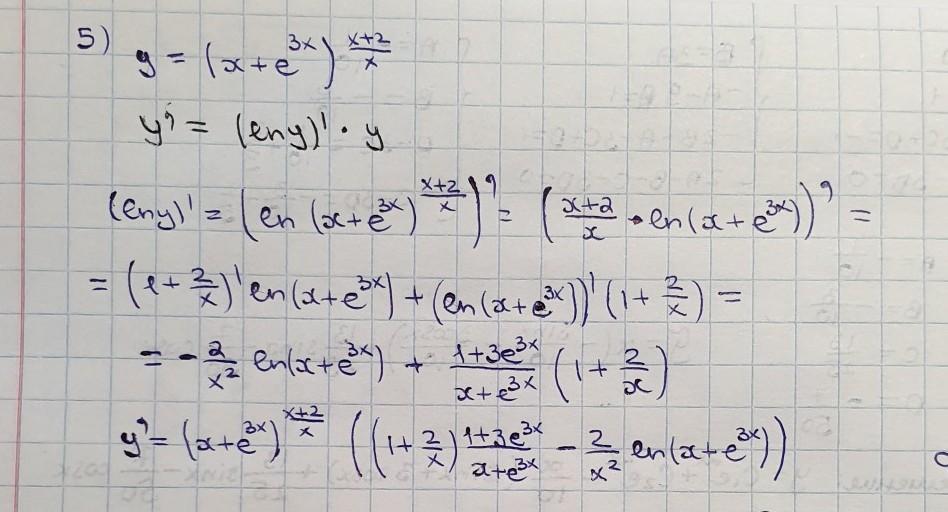 5) y = (x+e^{3x})^{\frac{x+2}{x}}
y' = (ln y)' · y
(ln y)' = (ln (x+e^{3x})^{\frac{x+2}{x}})' = (\frac{x+2}{x} · ln(x+e^{3x}))' =
= (1+\frac{2}{x})' ln(x+e^{3x}) + (ln(x+e^{3x}))' (1+\frac{2}{x}) =
= -\frac{2}{x^2} ln(x+e^{3x}) + \frac{1+3e^{3x}}{x+e^{3x}} (1+\frac{2}{x})
y' = (x+e^{3x})^{\frac{x+2}{x}} ((1+\frac{2}{x}) \frac{1+3e^{3x}}{x+e^{3x}} - \frac{2}{x^2} ln(x+e^{3x}))